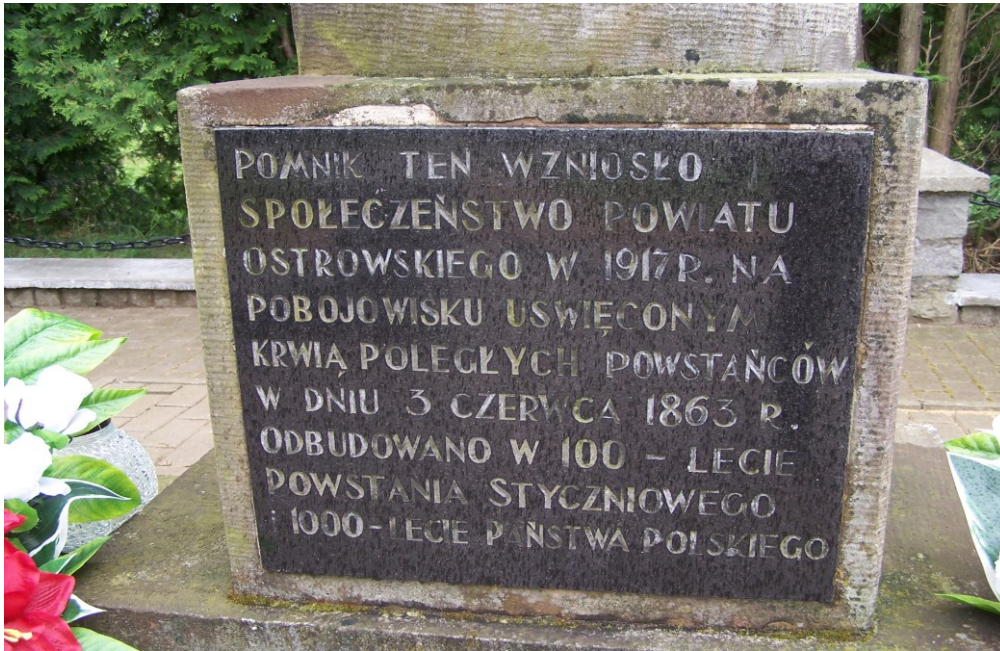 POMNIK TEN WZNIOSŁO
SPOŁECZEŃSTWO POWIATU
OSTROWSKIEGO W 1917 R. NA
POBOJOWISKU UŚWIĘCONYM
KRWIĄ POLEGŁYCH POWSTAŃCÓW
W DNIU 3 CZERWCA 1863 R.
ODBUDOWANO W 100 - LECIE
POWSTANIA STYCZNIOWEGO
i 1000-LECIE PAŃSTWA POLSKIEGO